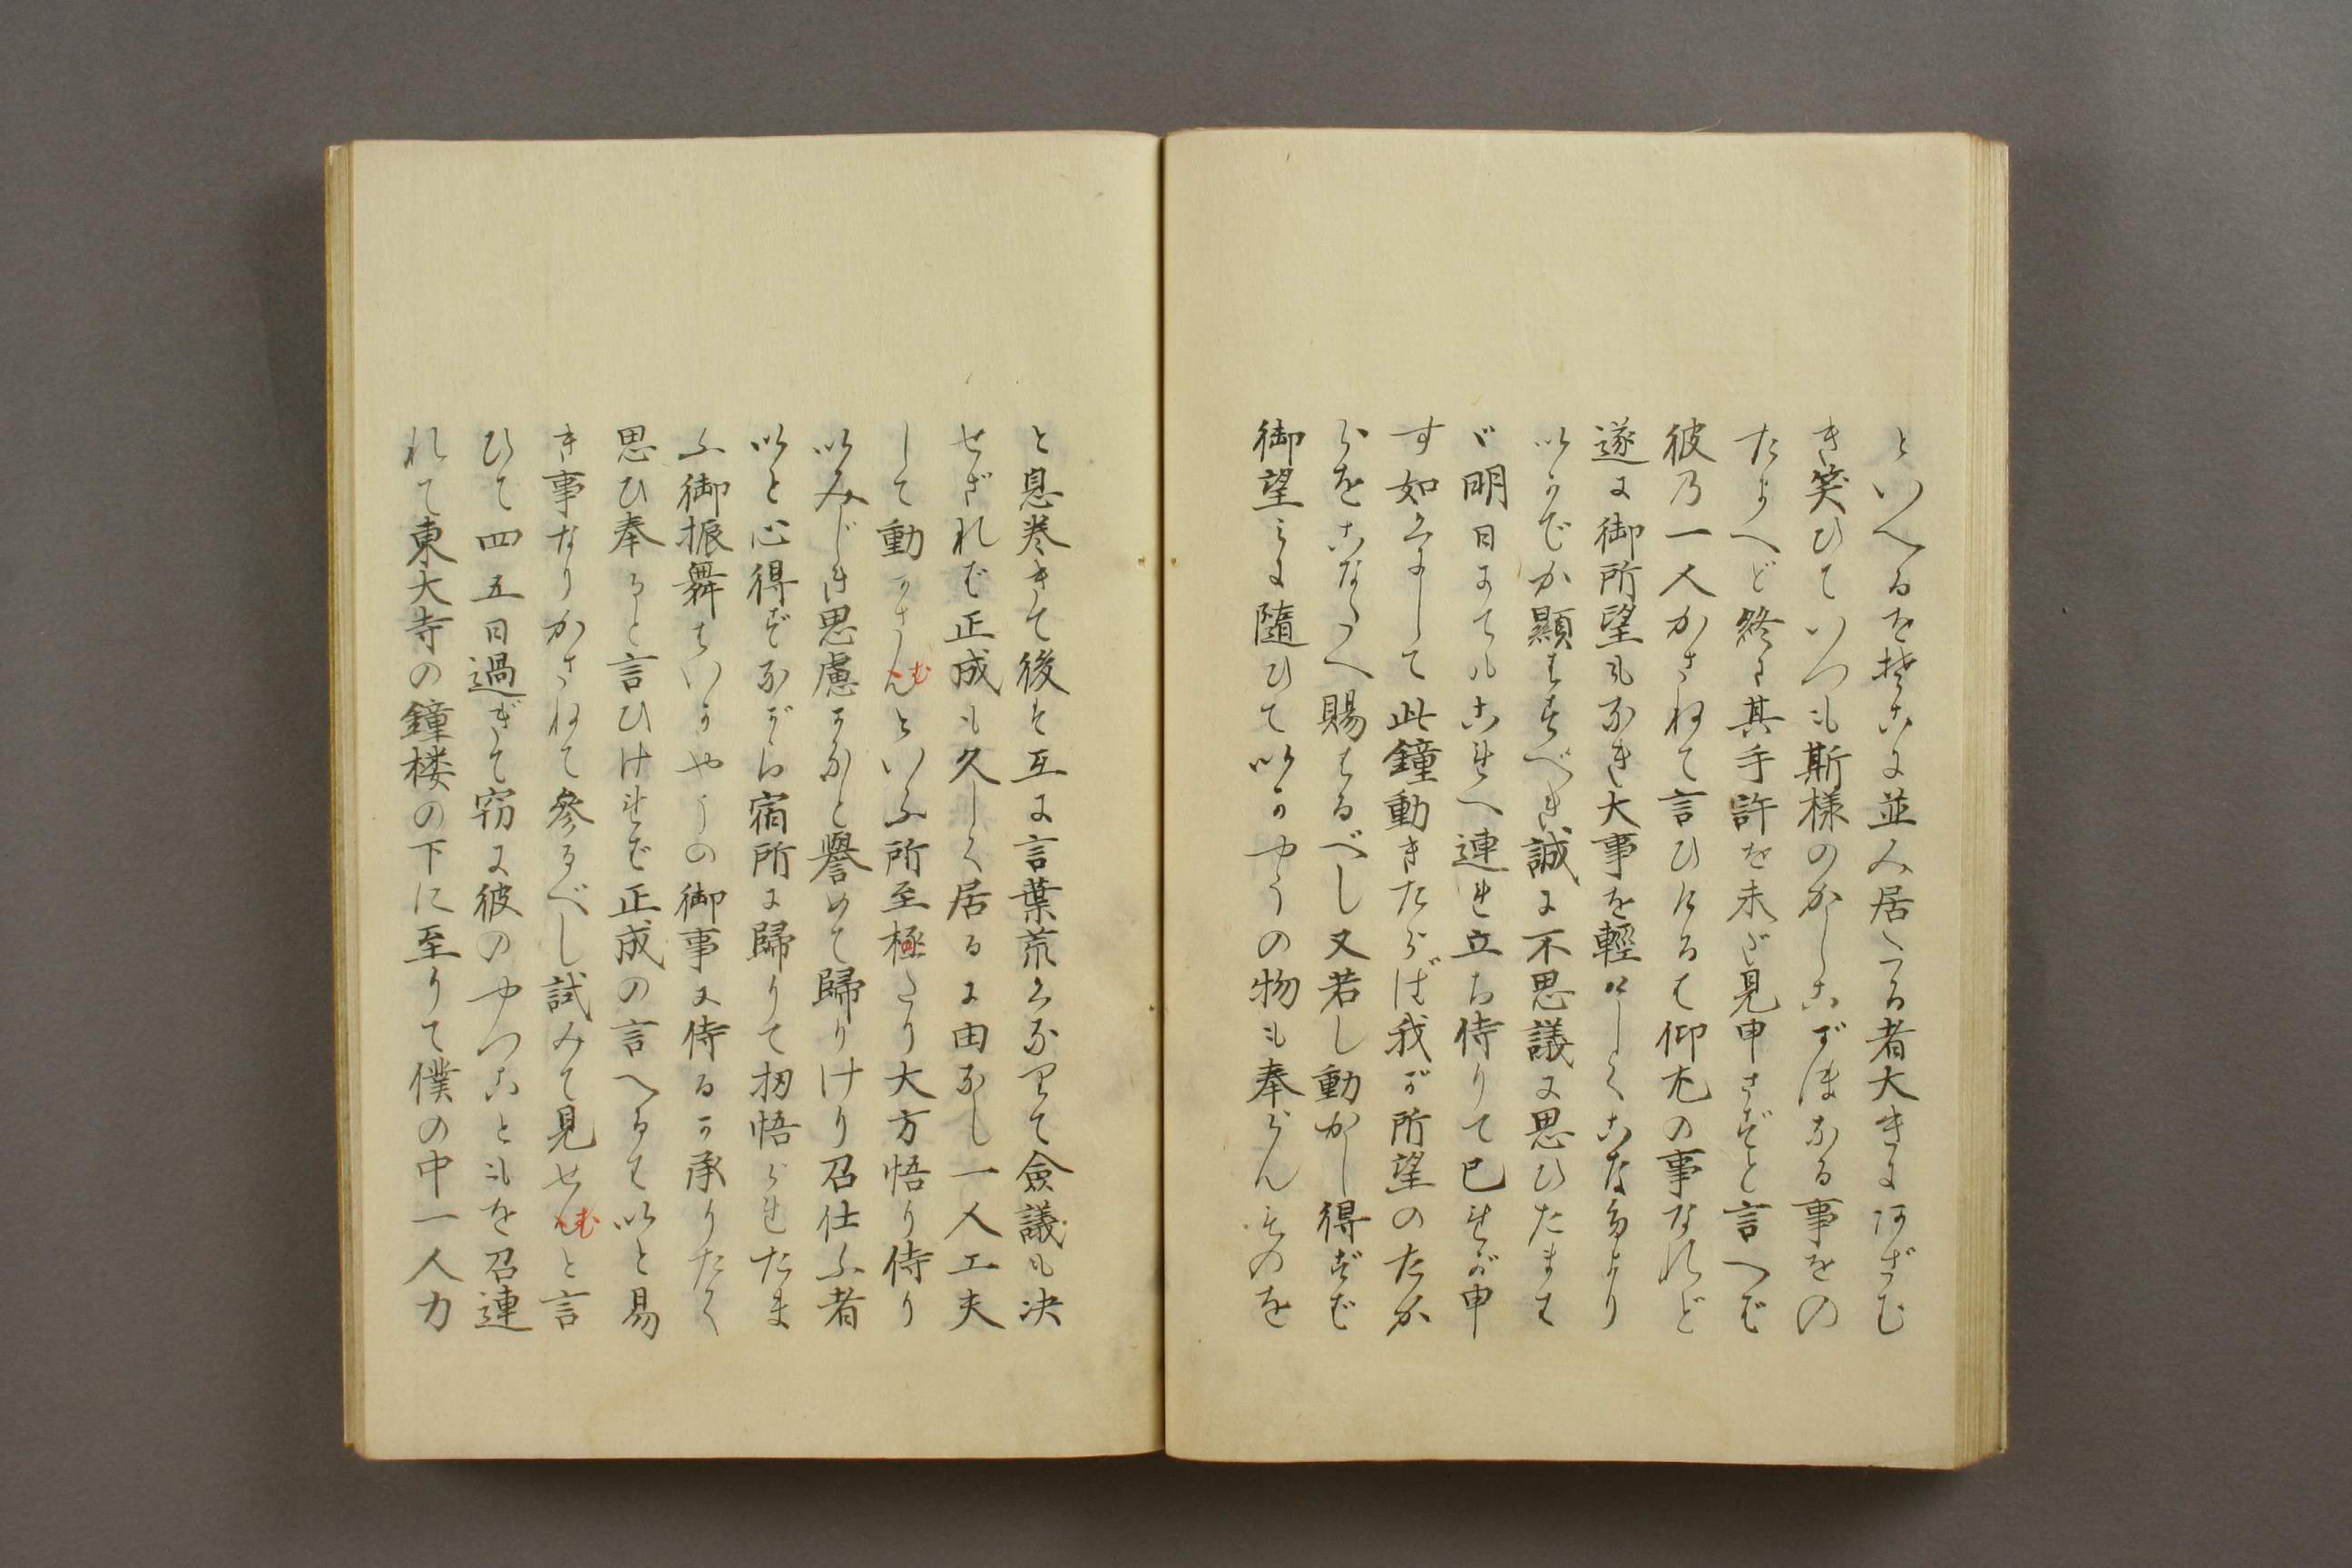 といへるをそこに並み居たる者大きにあざむ
き笑ひていつも斯様のかしこがほなる事をの
たまへど終に其手許を未ざ見申さずと言へば
彼の一人かさねて言ひけるは仰尤の事なれど
遂に御所望もなき大事を輕〳〵しくこなたより
いかでか顯はすべき誠に不思議に思ひたまは
ば明日まてもこれへ連れ立ち侍りて已れが申
す如くにして此鐘動きたらば我が所望のたか
らをこなたへ賜はるべし又若し動かし得ずば
御望みに隨ひていかやうの物も奉らんものを
と息巻きて後は互に言葉荒くなりて僉議も决
せざれば正成も久しく居るに由なし一人工夫
して動かさんむといふ所至極せり大方悟り侍り
いみじき思慮かなと譽めて歸りけり召仕ふ者
いと心得ずながら宿所に歸りて扨悟られたま
ふ御振舞はいかやうの御事に侍るか承りたく
思ひ奉ると言ひければ正成の言へるはいと易
き事なりかさねて參るべし試みて見せんむと言
ひて四五日過ぎて窃に彼のやつこともを召連
れて東大寺の鐘楼の下に至りて僕の中一人力